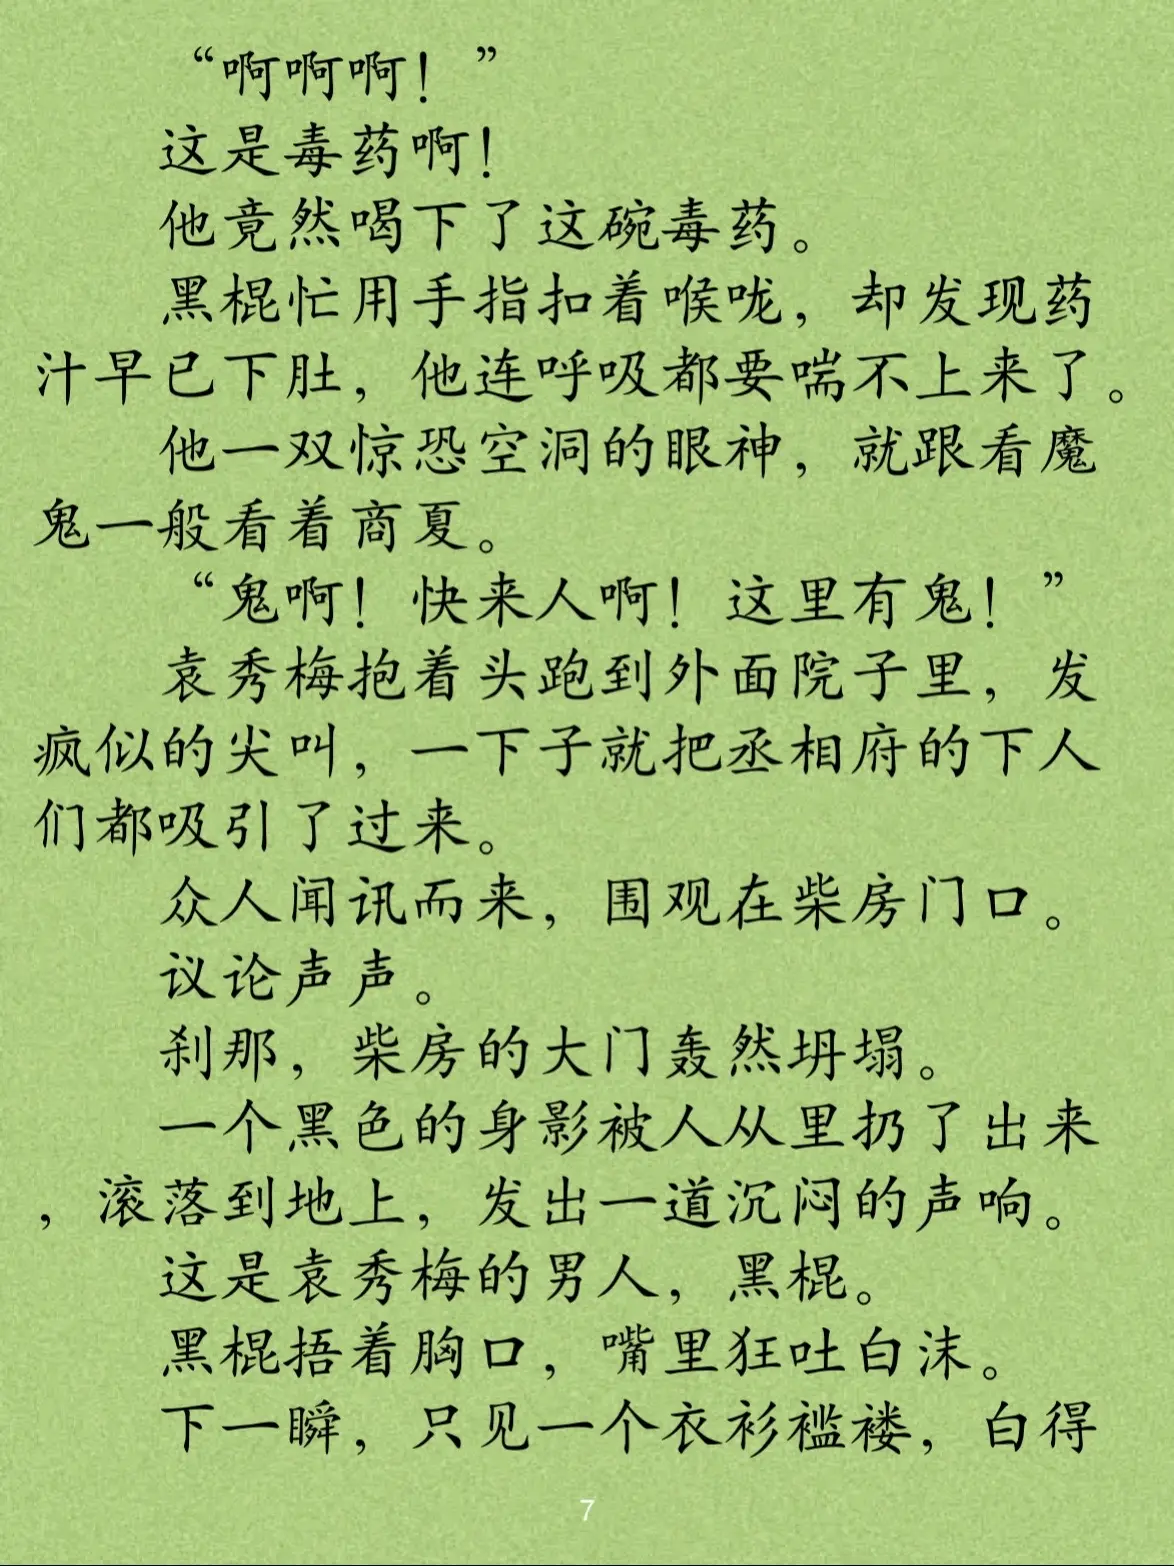 “啊啊啊！”
这是毒药啊！
他竟然喝下了这碗毒药。
黑棍忙用手指扣着喉咙，却发现药
汁早已下肚，他连呼吸都要喘不上来了。
他一双惊恐空洞的眼神，就跟看魔
鬼一般看着商夏。
“鬼啊！快来人啊！这里有鬼！”
袁秀梅抱着头跑到外面院子里，发
疯似的尖叫，一下子就把丞相府的下人
们都吸引了过来。
众人闻讯而来，围观在柴房门口。
议论声声。
刹那，柴房的大门轰然坍塌。
一个黑色的身影被人从里扔了出来
，滚落到地上，发出一道沉闷的声响。
这是袁秀梅的男人，黑棍。
黑棍捂着胸口，嘴里狂吐白沫。
下一瞬，只见一个衣衫褴褛，白得
7